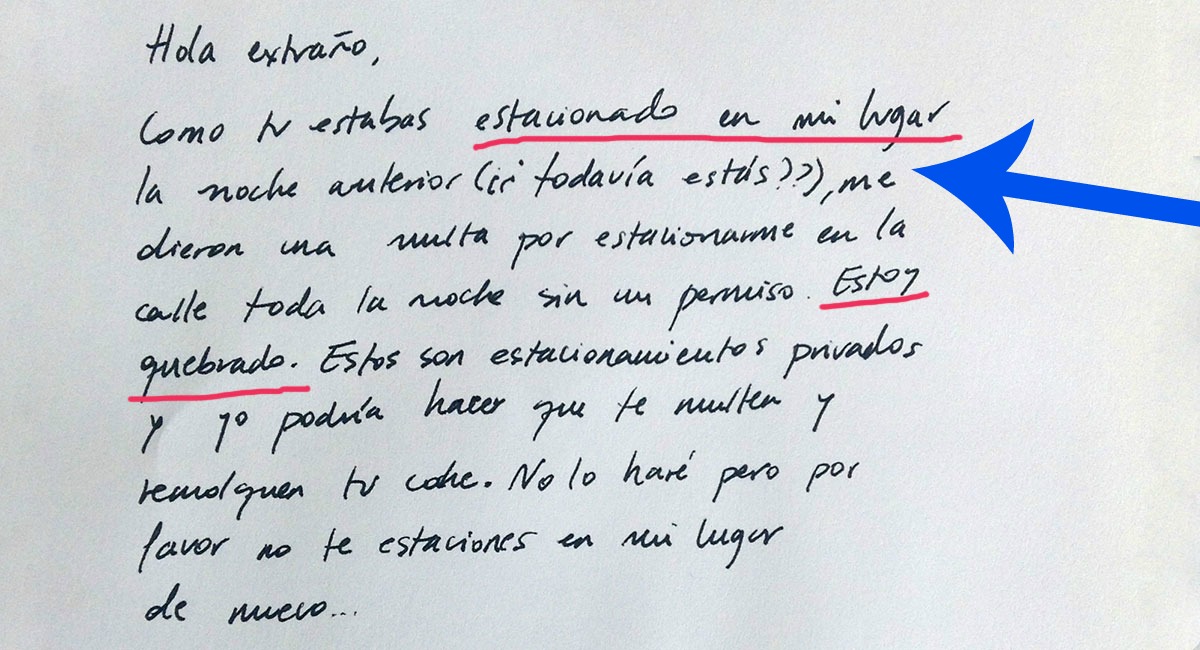 Hola extraño,
Como tu estabas estacionado en mi lugar
la noche anterior (¡¿ todavía estás??), me
dieron una multa por estacionarme en la
calle toda la noche sin un permiso. Estoy
quebrado. Estos son estacionamientos privados
y yo podría hacer que te multen y
remolquen tu coche. No lo haré pero por
favor no te estaciones en mi lugar
de nuevo...